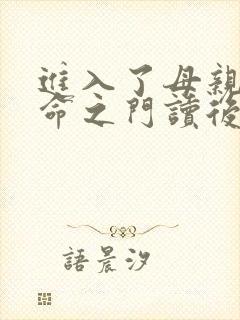 進入了母親
命之門讀後
語晨汐